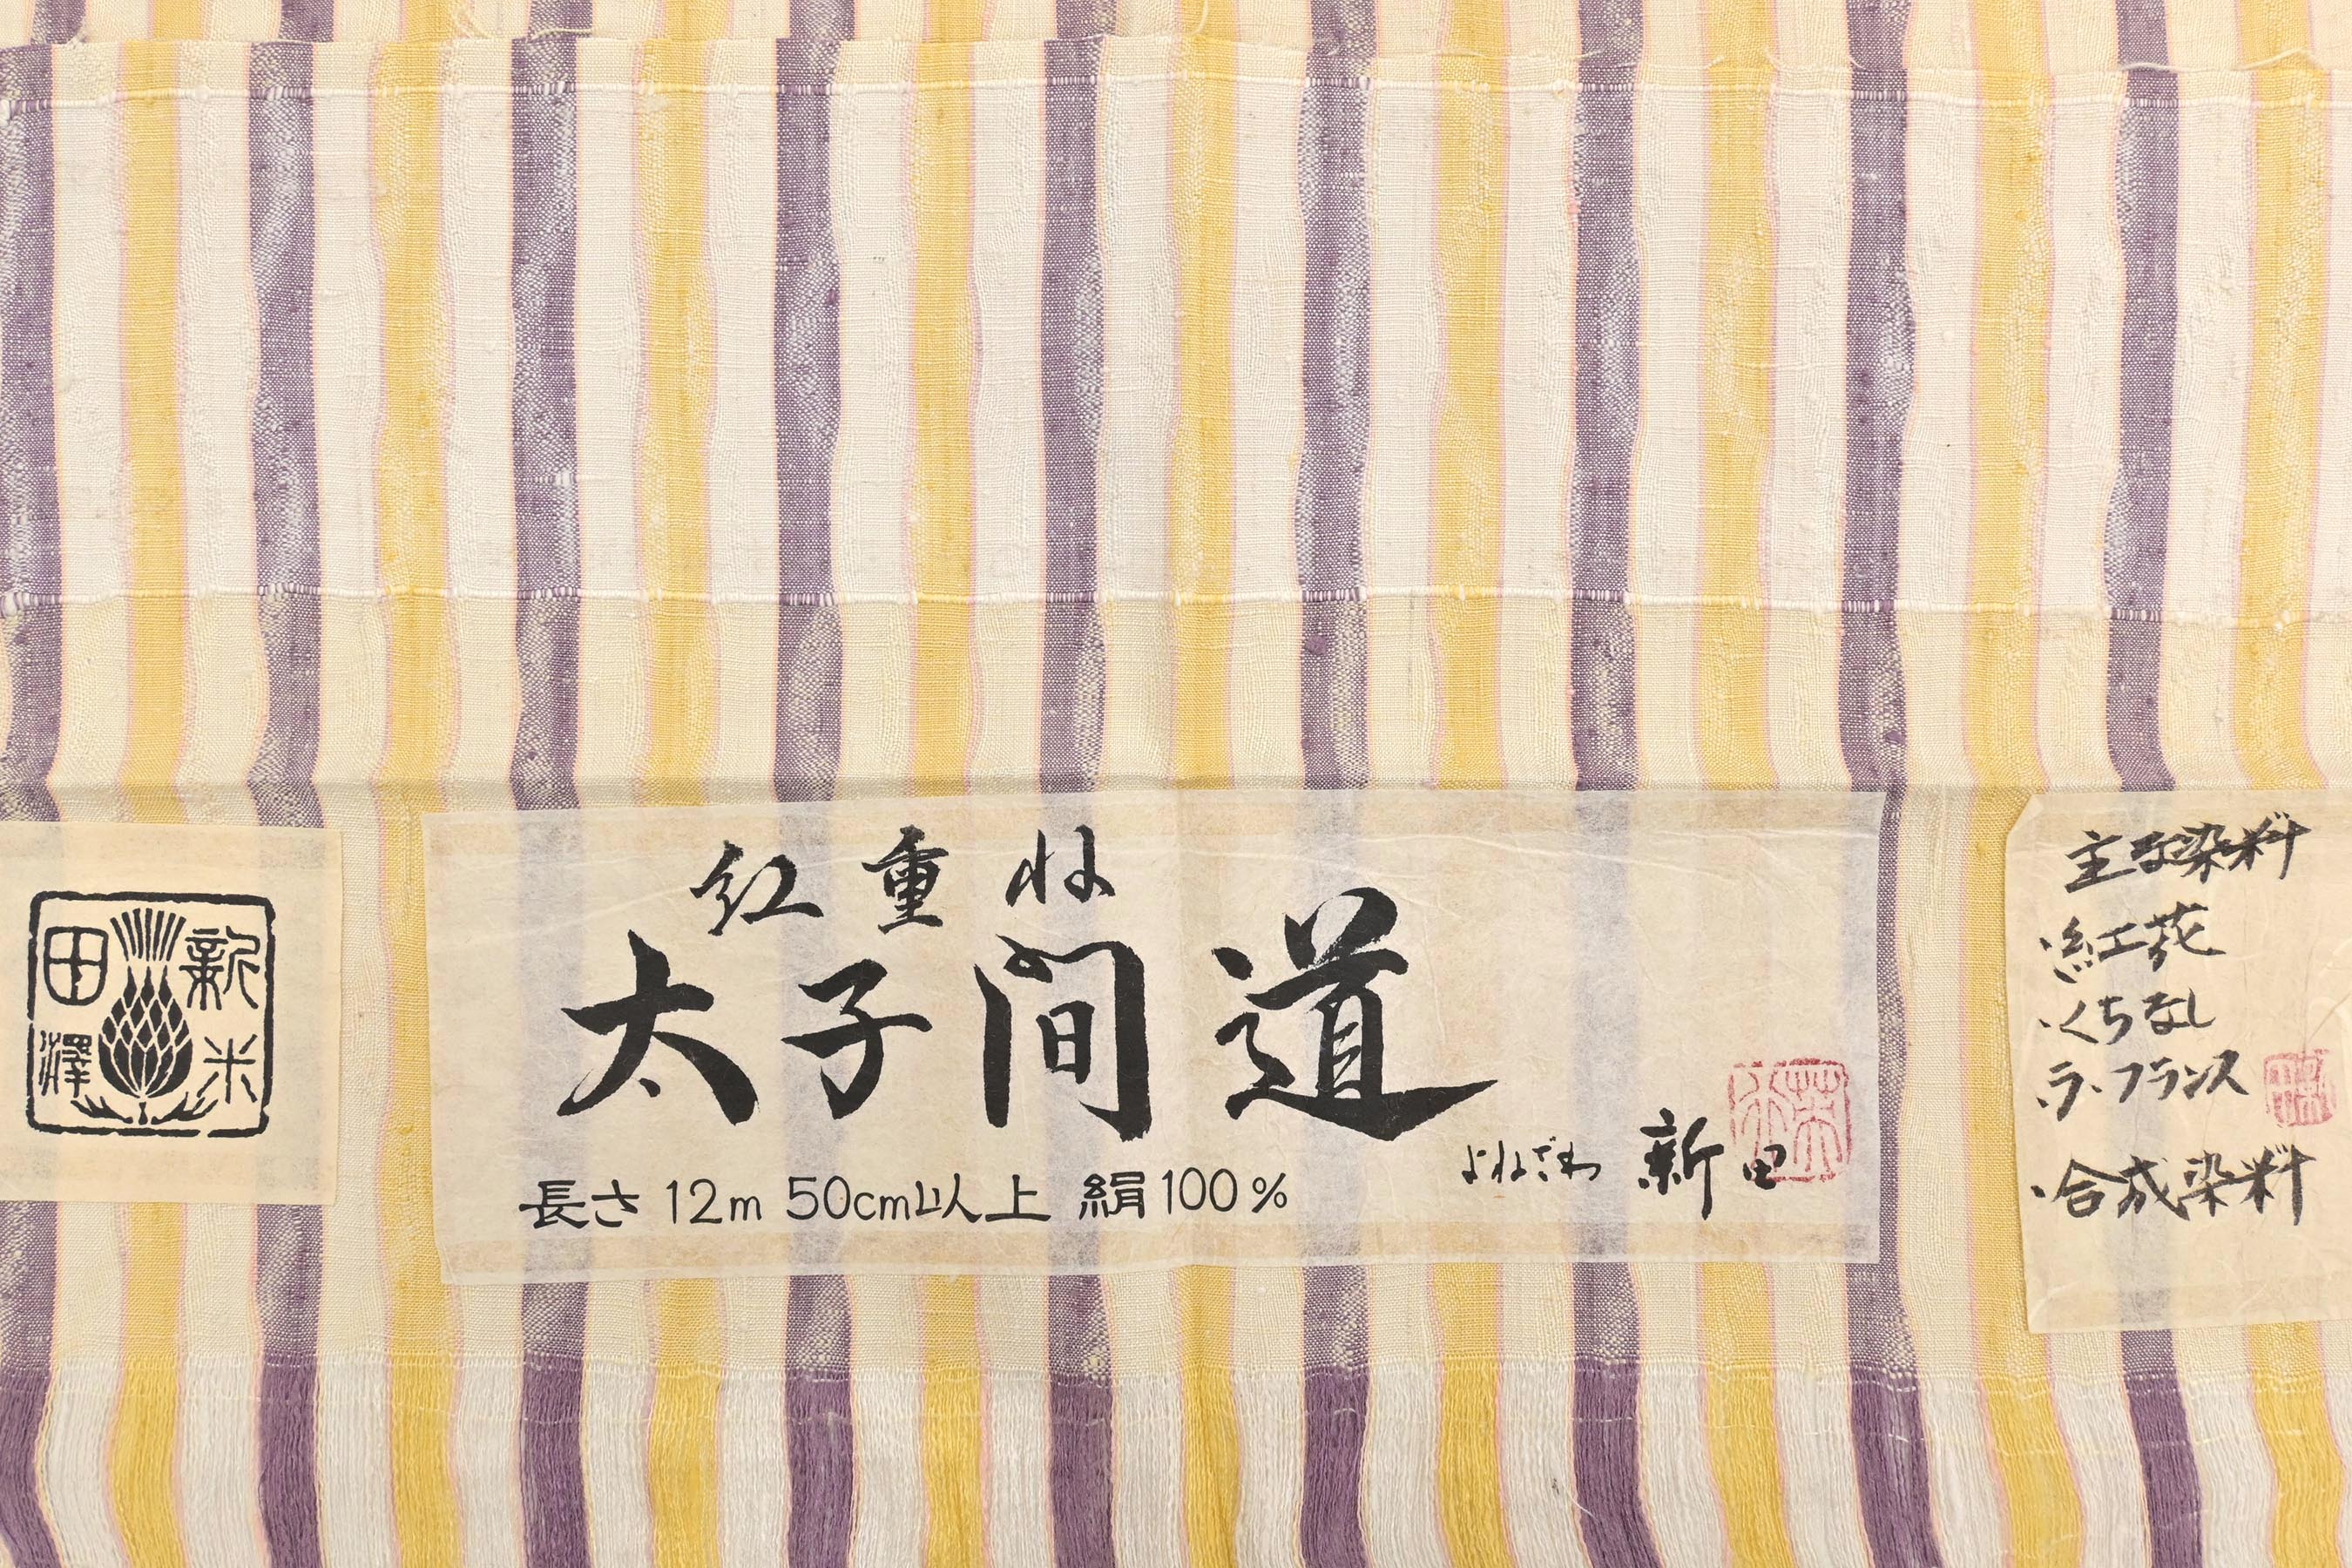 新田
米澤
紅重ね
太子間道
長さ 12m 50cm以上 絹100%
よねざわ 新田
主な染料
・紅花
・くちなし
・ラ・フランス
・合成染料